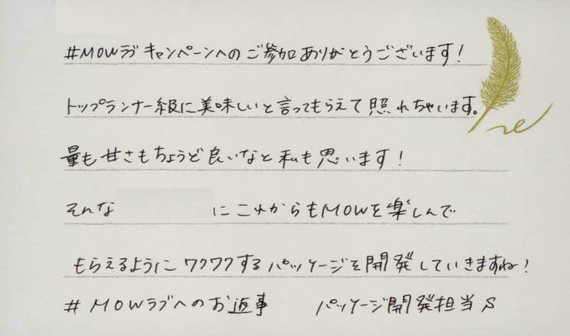 #MOWラブキャンペーンへのご参加ありがとうございます!
トップランナー級に美味しいと言ってもらえて照れちゃいます。
量も甘さもちょうど良いなと私も思います!
そんな にこれからもMOWを楽しんで
もらえるようにワクワクするパッケージを開発していきますね!
#MOWラブへのお返事 パッケージ開発担当S